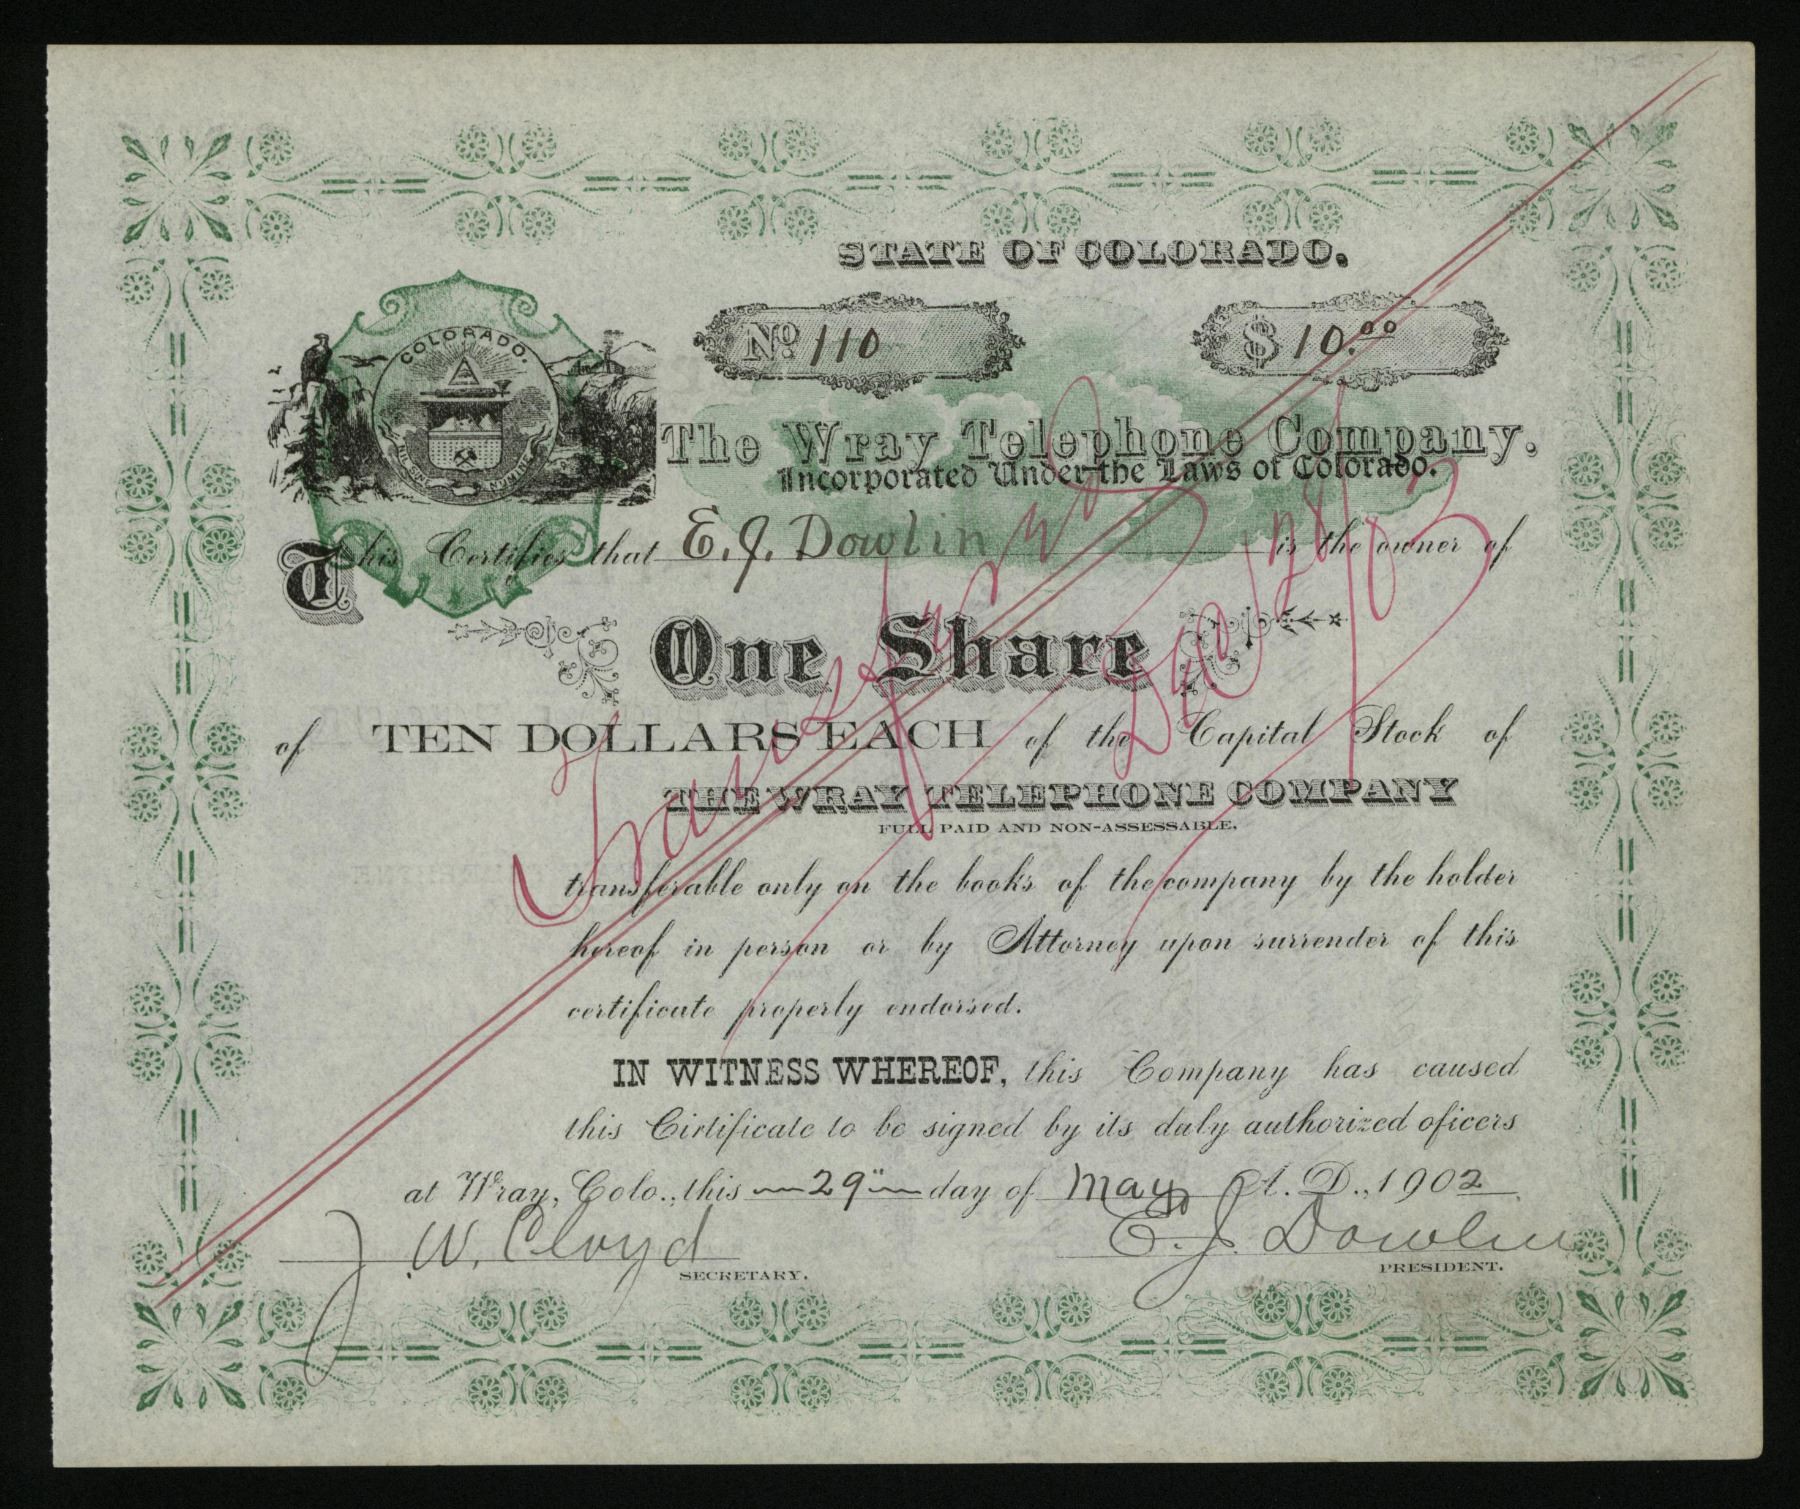 STATE OF COLORADO.
COLORADO.
NIL SINE NUMINE
No. 110
$ 10.00
The Wray Telephone Company.
Incorporated Under the Laws of Colorado.
This Certifies that E. J. Dowlin is the owner of
One Share
of TEN DOLLARS EACH of the Capital Stock of
THE WRAY TELEPHONE COMPANY
FULL PAID AND NON-ASSESSABLE.
transferable only on the books of the company by the holder
hereof in person or by Attorney upon surrender of this
certificate properly endorsed.
IN WITNESS WHEREOF, this Company has caused
this Cirtificate to be signed by its duly authorized oficers
at Wray, Colo., this 29" day of May A. D., 1902
J. W. Cloyd
SECRETARY.
E. J. Dowlin
PRESIDENT.
Transferred
Dec 28/03